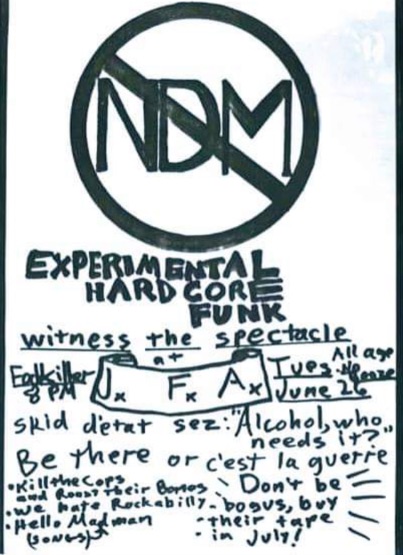 NDM
EXPERIMENTAL
HARD CORE
FUNK
witness the spectacle
at
8 PM
J. F. A.
Tues. All age
June 26
skid d'etat sez: "Alcohol, who
needs it?"
Be there or c'est la guerre
• Kill the Cops
and Roast Their Bones
• we hate Rockabilly
• Hello Madman
(songs)
Don't be
- bogus, buy
- their tape
- in July!